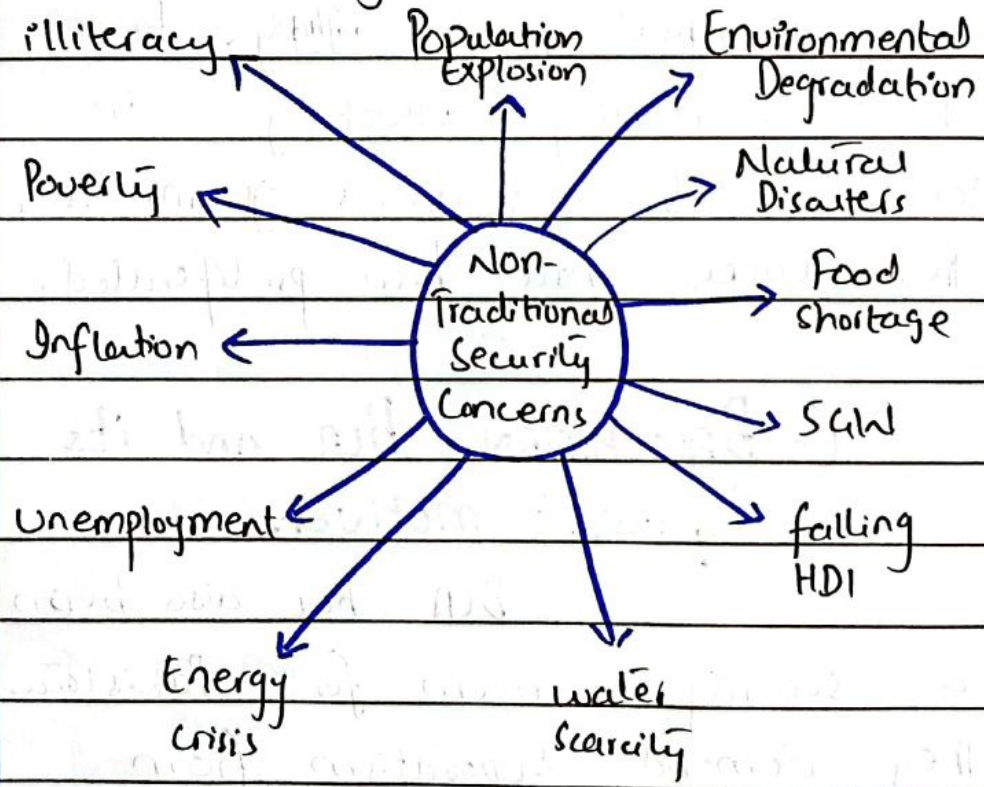 illiteracy
Population
Explosion
Environmental
Degradation
Poverty
Natural
Disasters
Non-
Traditional
Security
Concerns
Food
shortage
Inflation
5GW
unemployment
falling
HDI
Energy
crisis
water
scarcity